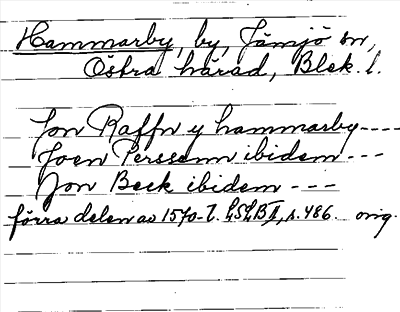 Hammarby, by, Jämjö sn,
Östra härad, Blek. l.
Jon Raffn y hammarby ----
Joen Perssenn ibidem ---
Jon Beck ibidem ---
förra delen av 1570-t. LSLB II, s. 486. orig.